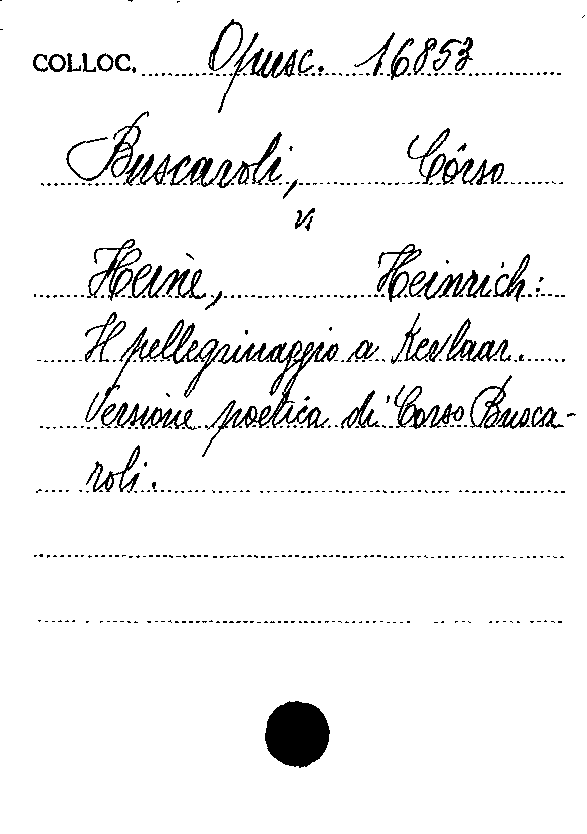 COLLOC. Opusc. 16853
Buscaroli, Corso
vs
Heine, Heinrich:
Il pellegrinaggio a Kevlaar.
Versione poetica di Corso Busca-
roli.